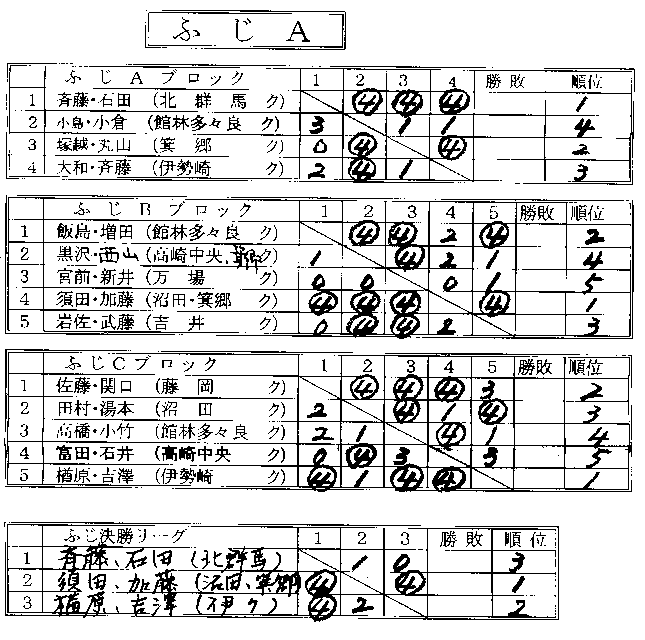 ふじA
ふじAブロック 1 2 3 4 勝敗 順位
1 斉藤・石田 (北群馬ク) ④ ④ ④ 1
2 小島・小倉 (館林多々良ク) 3 1 1 4
3 塚越・丸山 (箕郷ク) 0 ④ ④ 2
4 大和・斉藤 (伊勢崎ク) 2 ④ 1 3
ふじBブロック 1 2 3 4 5 勝敗 順位
1 飯島・増田 (館林多々良ク) ④ ④ 2 ④ 2
2 黒沢・西山 (高崎中央、ク) 1 ④ 2 1 4
3 宮前・新井 (万場ク) 0 0 0 1 5
4 須田・加藤 (沼田・箕郷ク) ④ ④ ④ ④ 1
5 岩佐・武藤 (吉井ク) 0 ④ ④ 2 3
ふじCブロック 1 2 3 4 5 勝敗 順位
1 佐藤・関口 (藤岡ク) ④ ④ ④ 3 2
2 田村・湯本 (沼田ク) 2 ④ 1 ④ 3
3 高橋・小竹 (館林多々良ク) 2 1 ④ 1 4
4 富田・石井 (高崎中央ク) 0 ④ 3 3 5
5 楢原・吉澤 (伊勢崎ク) ④ 1 ④ ④ 1
ふじ決勝リーグ 1 2 3 勝敗 順位
1 斉藤、石田 (北群馬) 1 0 3
2 須田、加藤 (沼田、箕郷) ④ ④ 1
3 楢原、吉澤 (伊ク) ④ 2 2